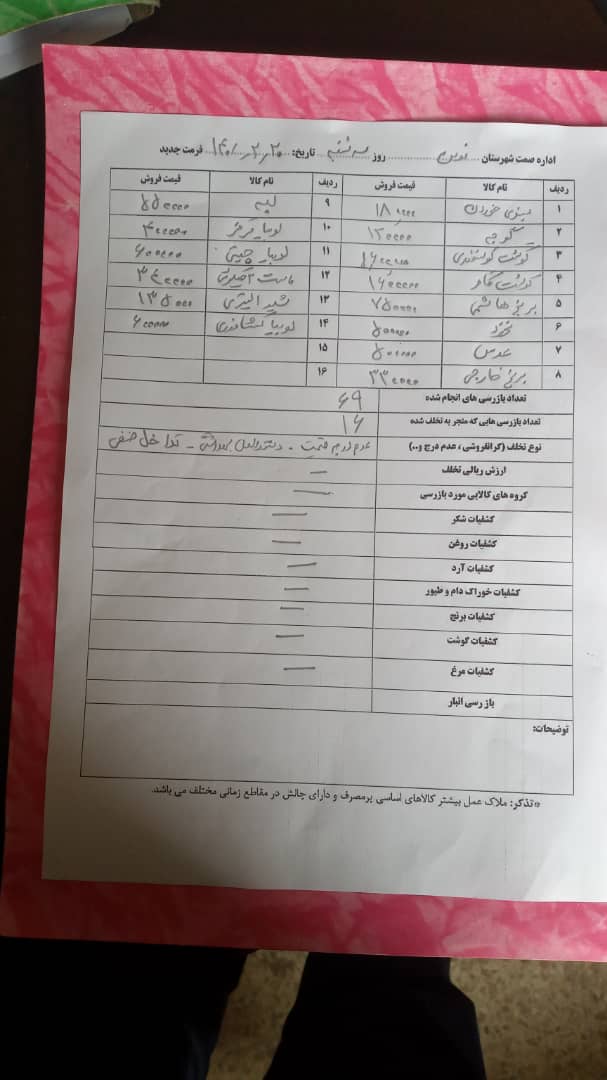 اداره صمت شهرستان ... روز سه شنبه تاریخ: ۱۴۰۱/۲/۲۰ فرمت جدید
ردیف نام کالا قیمت فروش ردیف نام کالا قیمت فروش
۱ سبزی خوردن ۱۸۰۰۰۰ ۹ لپه ۵۵۰۰۰۰
۲ گوجه ۱۲۰۰۰۰ ۱۰ لوبیا قرمز ۴۰۰۰۰۰
۳ گوشت گوسفندی ۱۶۰۰۰۰۰ ۱۱ لوبیا چیتی ۶۰۰۰۰۰
۴ گوشت گاو ۱۶۰۰۰۰۰ ۱۲ ماست ۳۴۰۰۰۰
۵ برنج هاشمی ۷۵۰۰۰۰ ۱۳ شیر ۱ لیتری ۱۳۵۰۰۰
۶ نخود ۵۰۰۰۰۰ ۱۴ لوبیا ۶۰۰۰۰۰
۷ عدس ۵۰۰۰۰۰ ۱۵
۸ برنج خارجی ۳۳۰۰۰۰ ۱۶
تعداد بازرسی های انجام شده ۶۹
تعداد بازرسی هایی که منجر به تخلف شده ۱۶
نوع تخلف (گرانفروشی ، عدم درج و..) عدم درج قیمت - بهداشتی - تداخل صنفی
ارزش ریالی تخلف —
گروه های کالایی مورد بازرسی —
کشفیات شکر —
کشفیات روغن —
کشفیات آرد —
کشفیات خوراک دام و طیور —
کشفیات برنج —
کشفیات گوشت —
کشفیات مرغ —
باز رسی انبار
توضیحات:
*تذکر: ملاک عمل بیشتر کالاهای اساسی پرمصرف و دارای چالش در مقاطع زمانی مختلف می باشد.